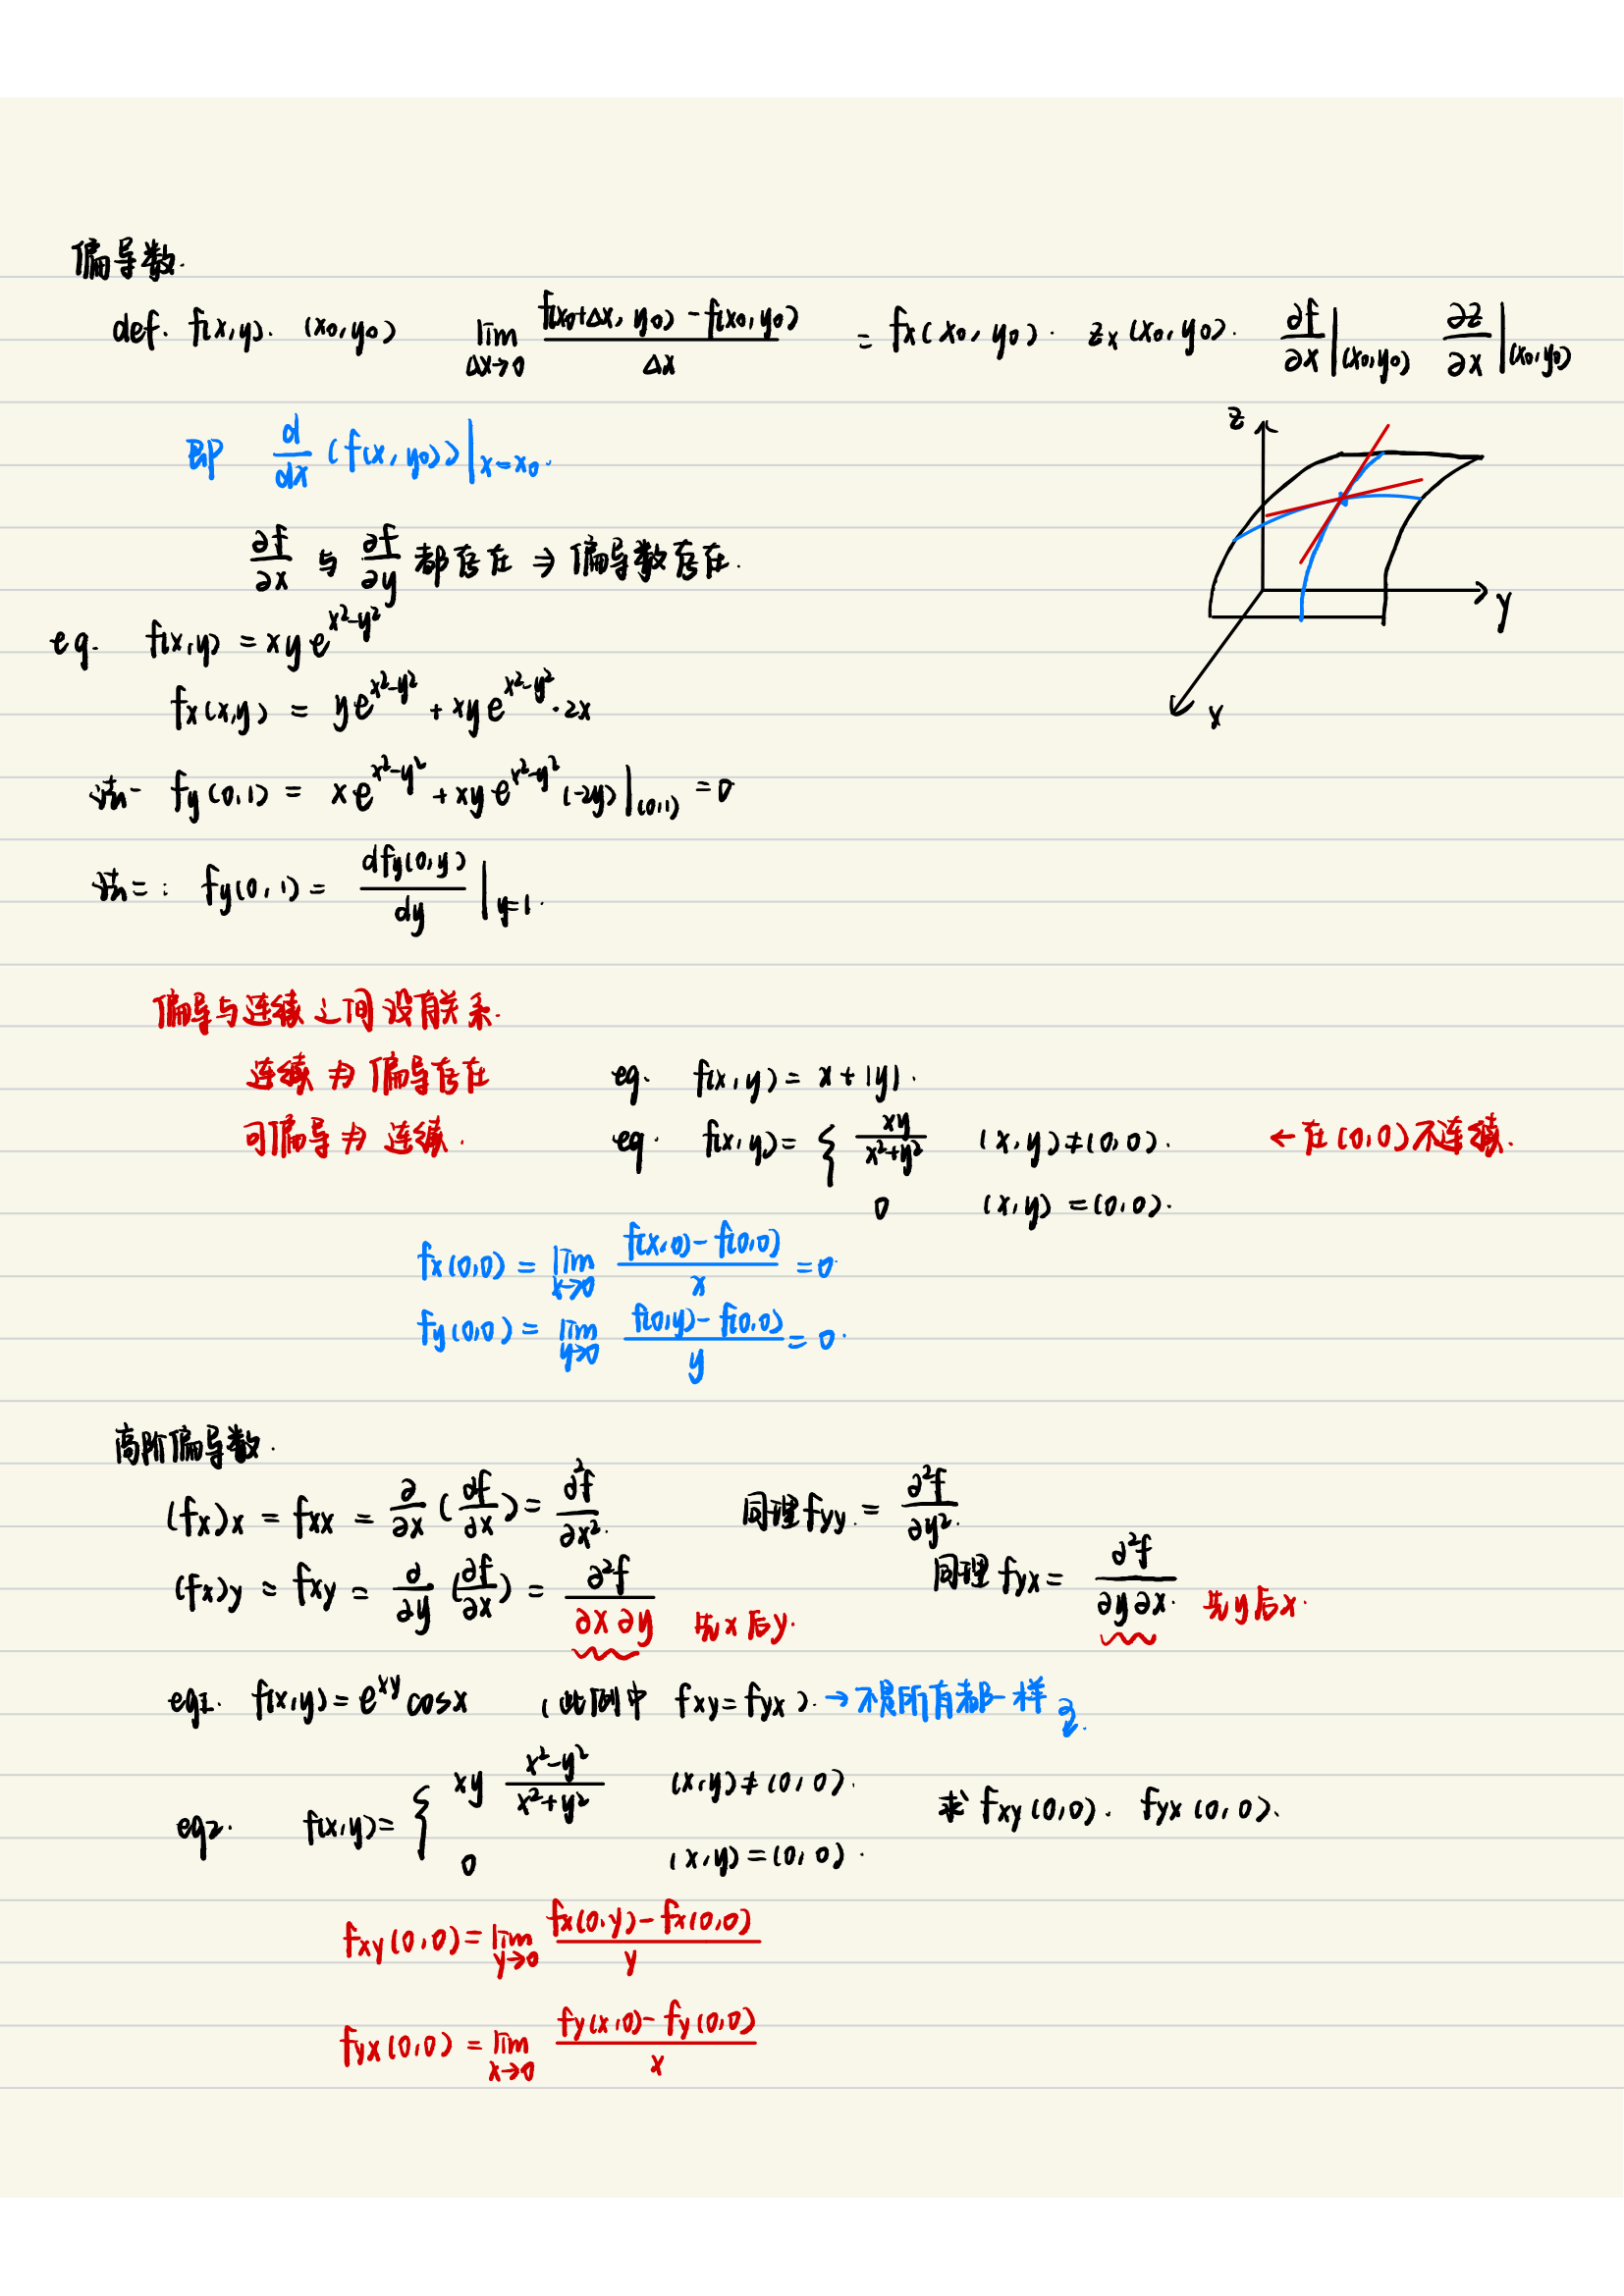 偏导数.
def. f(x,y). (x₀,y₀) lim_{Δx→0} \frac{f(x₀+Δx, y₀) - f(x₀,y₀)}{Δx} = f_x(x₀, y₀). z_x(x₀,y₀). \frac{∂f}{∂x}|_{(x₀,y₀)} \frac{∂z}{∂x}|_{(x₀,y₀)}
即 \frac{d}{dx} (f(x, y₀))|_{x=x₀}.
z
y
x
\frac{∂f}{∂x} 与 \frac{∂f}{∂y} 都存在 ⇒ 偏导数存在.
eg. f(x,y) = xy e^{x²-y²}
f_x(x,y) = y e^{x²-y²} + xy e^{x²-y²}·2x
法一 f_y(0,1) = x e^{x²-y²} + xy e^{x²-y²}(-2y)|_{(0,1)} = 0
法二: f_y(0,1) = \frac{df_y(0,y)}{dy}|_{y=1}.
偏导与连续之间没有关系.
连续 ⇏ 偏导存在 eg. f(x,y) = x + |y|.
可偏导 ⇏ 连续. eg. f(x,y) = { \frac{xy}{x²+y²} (x,y) ≠ (0,0). ← 在(0,0)不连续.
0 (x,y) = (0,0).
f_x(0,0) = lim_{x→0} \frac{f(x,0) - f(0,0)}{x} = 0
f_y(0,0) = lim_{y→0} \frac{f(0,y) - f(0,0)}{y} = 0.
高阶偏导数.
(f_x)_x = f_{xx} = \frac{∂}{∂x} (\frac{∂f}{∂x}) = \frac{∂²f}{∂x²}. 同理 f_{yy}. = \frac{∂²f}{∂y²}.
(f_x)_y = f_{xy} = \frac{∂}{∂y} (\frac{∂f}{∂x}) = \frac{∂²f}{∂x∂y} 先x后y. 同理 f_{yx} = \frac{∂²f}{∂y∂x}. 先y后x.
eg1. f(x,y) = e^{xy} cosx (此例中 f_{xy} = f_{yx}). → 不是所有都一样
eg2. f(x,y) = { xy \frac{x²-y²}{x²+y²} (x,y) ≠ (0,0). 求 f_{xy}(0,0). f_{yx}(0,0).
0 (x,y) = (0,0).
f_{xy}(0,0) = lim_{y→0} \frac{f_x(0,y) - f_x(0,0)}{y}
f_{yx}(0,0) = lim_{x→0} \frac{f_y(x,0) - f_y(0,0)}{x}